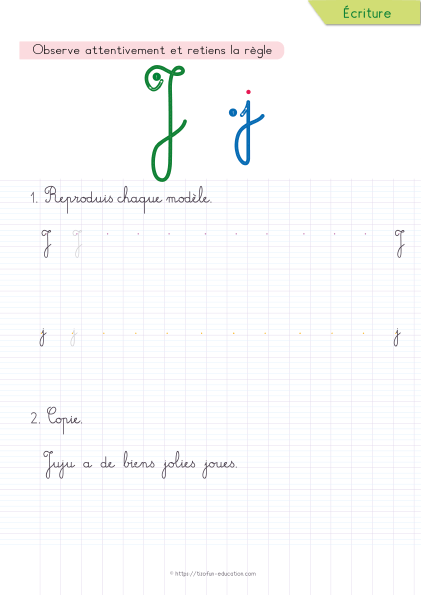 Écriture
Observe attentivement et retiens la règle
J j
1. Reproduis chaque modèle.
J J J
j j j
2. Copie.
Juju a de biens jolies joues.
© https://tisofun-education.com